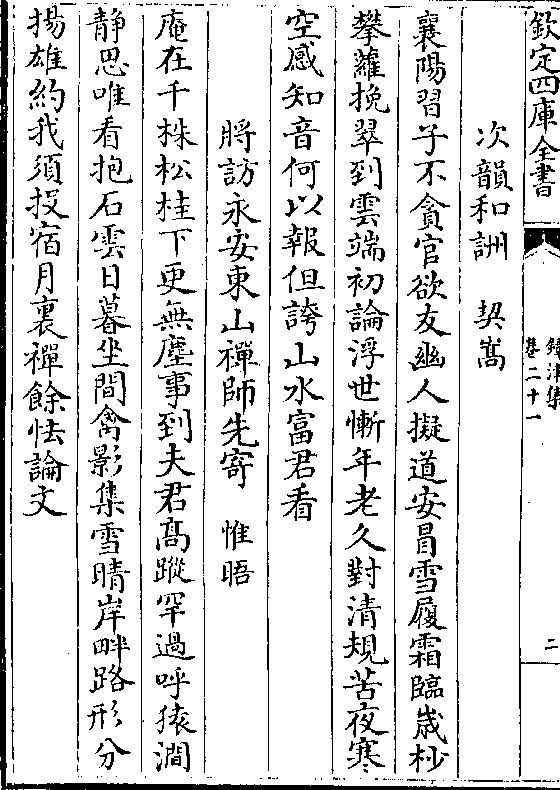 欽定四庫全書
鐔津集
卷二十一
二
次韻和詶　契嵩
襄陽習子不貪官欲友幽人擬道安冒雪履霜臨歳杪
攀蘿挽翠到雲端初論浮世慚年老久對清規苦夜寒
空感知音何以報但誇山水富君看
將訪永安東山禪師先寄　惟晤
庵在千株松桂下更無塵事到夫君髙蹤罕過呼猿澗
静思唯看抱石雲日暮坐間禽影集雪晴岸畔路形分
揚雄約我須投宿月裏禪餘恠論文